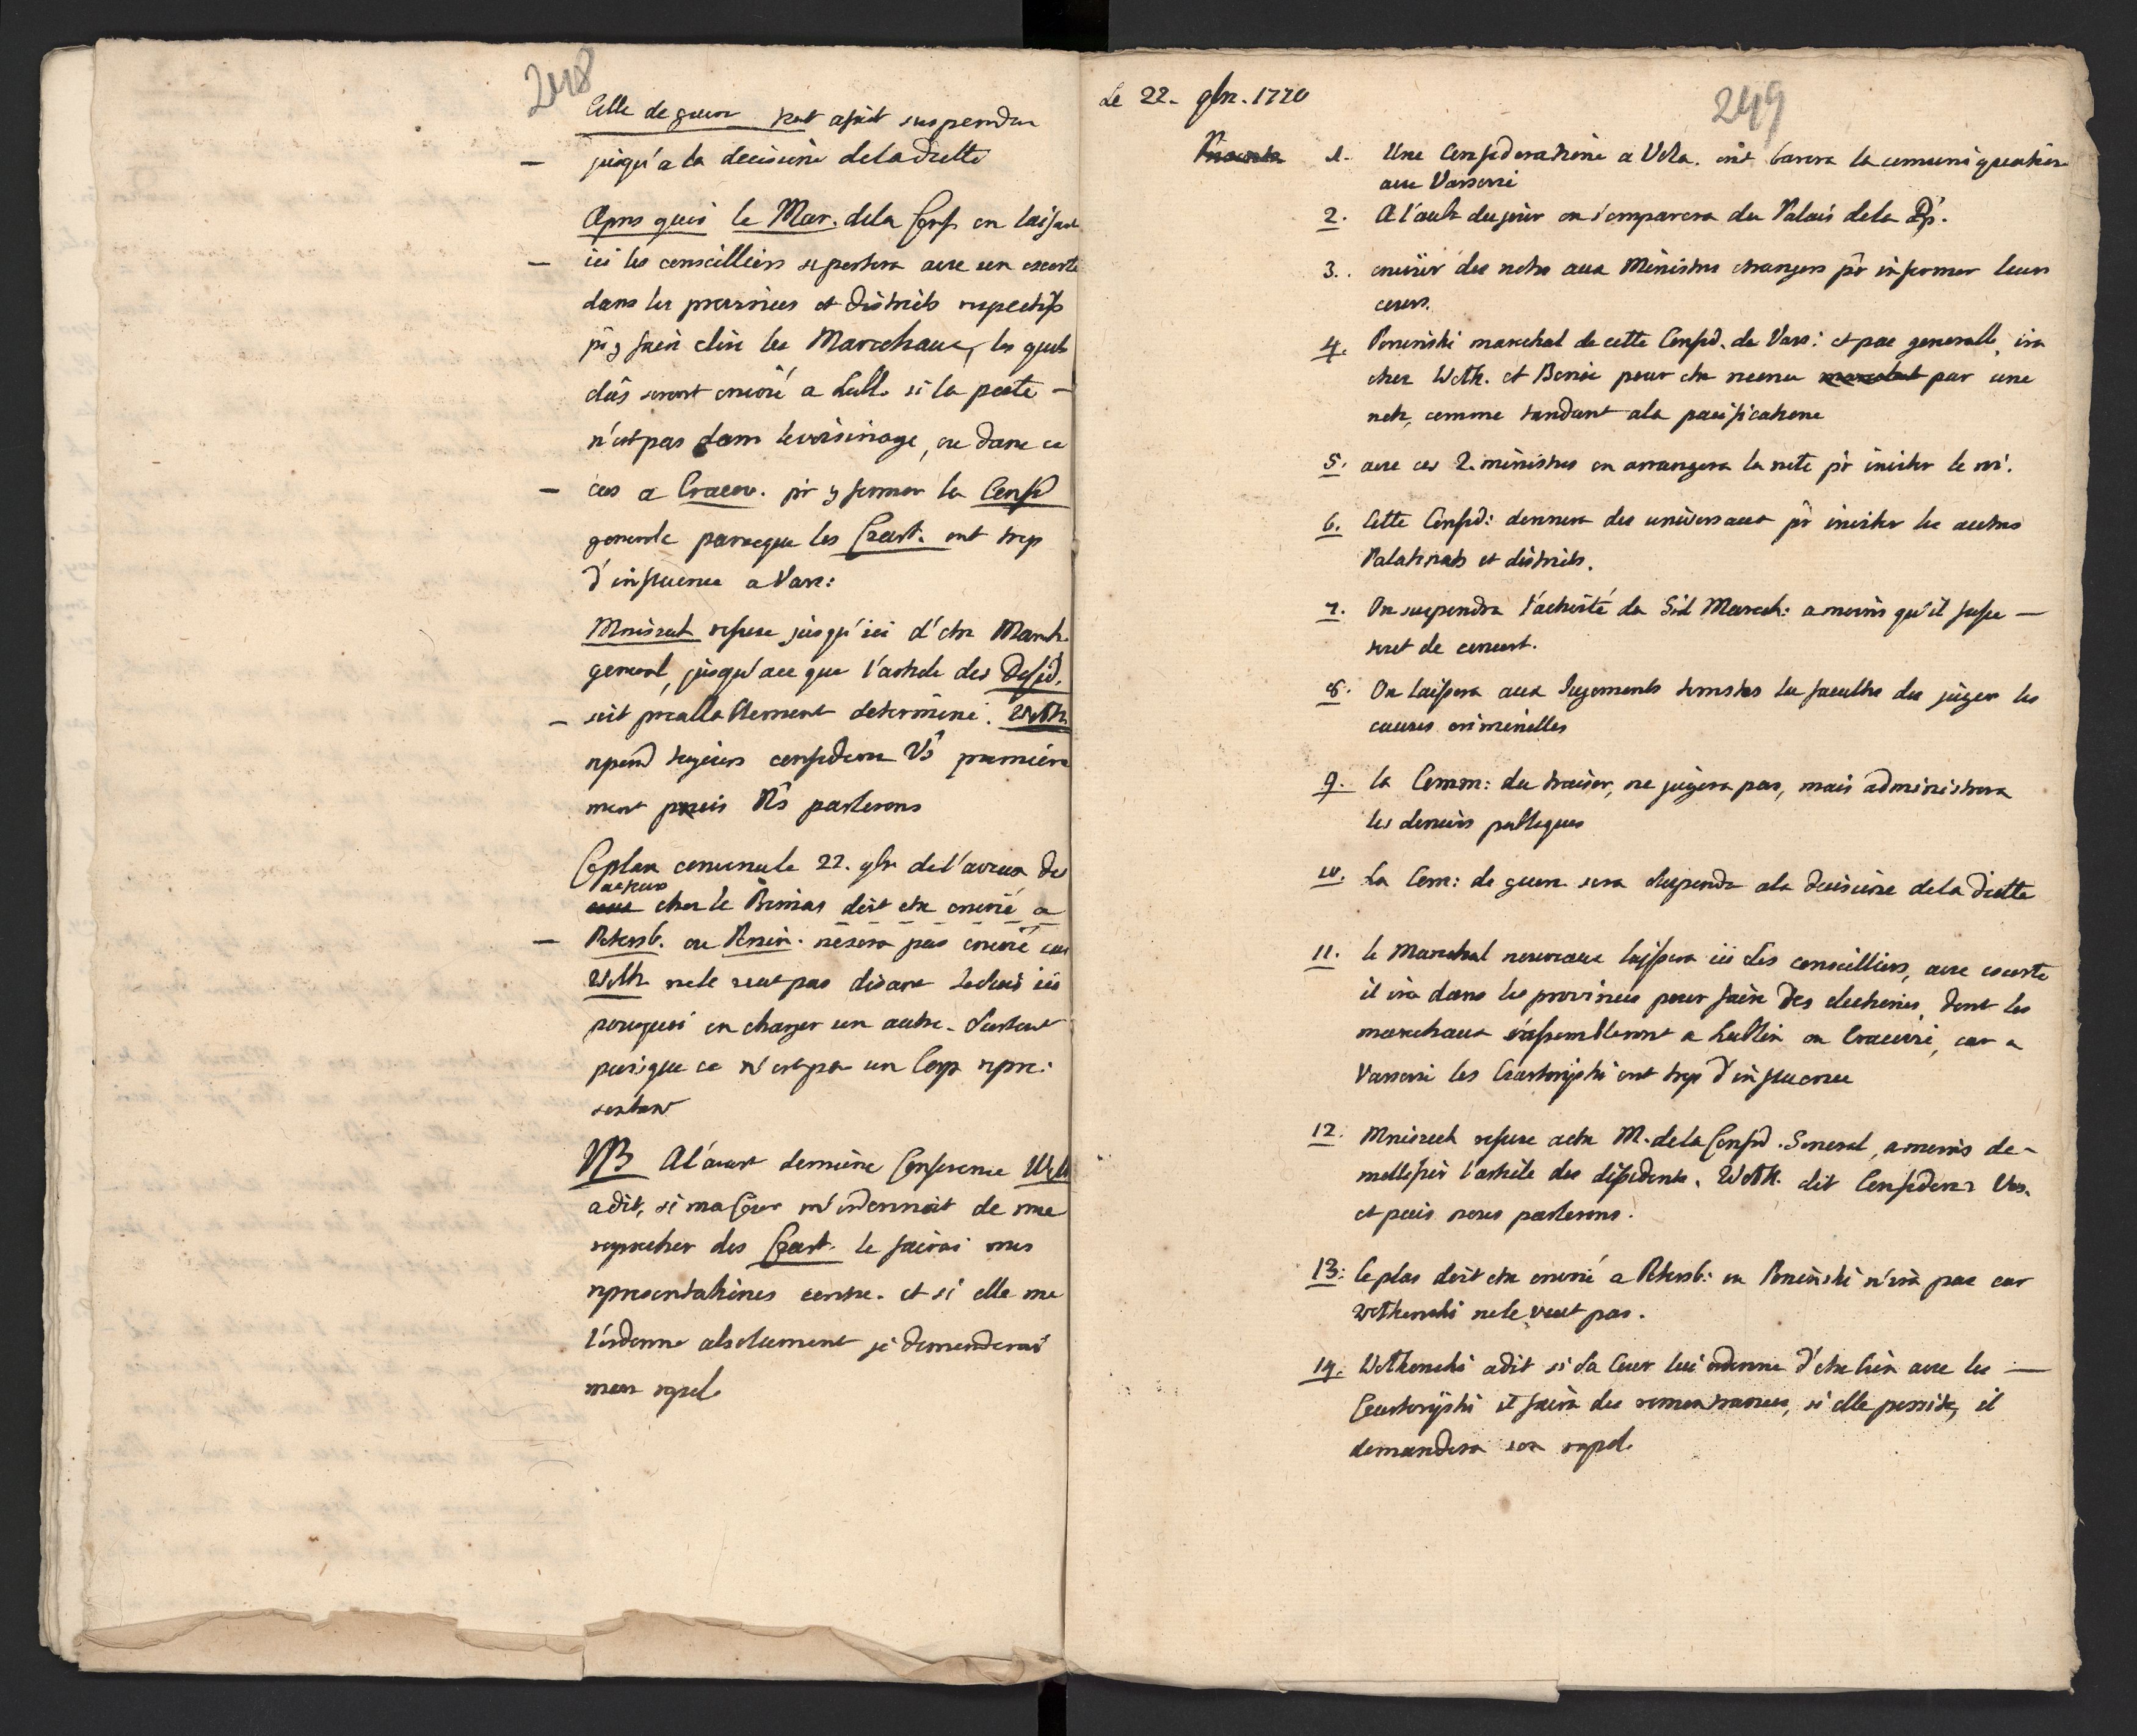 248
Celle de guerre tout a fait suspendue
– jusqu'a la decisione dela diette
Apres quoi le Mar. dela Conf. en laissant
– ici les conseilliers se portera avec un escorte
dans les provinces et districts respectifs
pr y fair elire les Marechaux, les quels
elus seront envoié a Lubl. si la peste –
n'est pas dans le voisinage, ou dans ce
– cas a Cracov. pr y former la Confd
generale parceque les Czart. ont trop
d'influence a Vars:
Mniszech refuse jusqu'ici d'etre March.
general, jusqu'a ce que l'article des Dissid.
– soit preallablement determiné. Wolk.
repond toujours confederez Vs premiere
ment puis Ns parlerons
Ce plan convenu le 22. 9br de l'aveux de
acteurs
chez le Primas doit etre envoié a
– Petersb. ou Ponin. ne sera pas envoié car
Wolk. ne le veut pas disant
pourquoi en charger un autre. Surtout
puisque ce n'est pas un Corp repre:
sentant
NB A l'avant derniere Conference Wolk
a dit, si ma Cour m'ordonnoit de me
raprocher des Czart. je fairai mes
representationes contre. et si elle me
l'ordonne absolument je demanderai
mon rapel.
Le 22. 9br. 1770
249
1. Une Confederatione a Vola. ont barera la comuniquation
avec Varsovie
2. A l'aube du jour on s'emparera du Palais dela Rp.
3. envoier des notes aux Ministres etrangers pr informer leurs
cours.
4. Poninski marechal de cette Confed. de Vars: et pas generalle, ira
chez Wolk. et Benoi pour etre reconu marechal par une
note, comme tendant a la pacificatione
5. avec ces 2. ministres on arrangera la note pr inviter le roi.
6. Cette Confed: donnera des universaux pr inviter les autres
Palatinats et districts.
7. On suspendra l'activité de Gd Marech: a moins qu'il fusse –
tout de concert.
8. On laissera aux Jugements la faculté de juger les
causes criminelles
9. la Comm: du tresor, ne jugera pas, mais administrera
les deniers publiques
10. La Com: de guerre sera suspendu a la decisione dela diette
11. le Marechal nouveaux laissera ici Les conseilliers, avec escorte
il ira dans les provinces pour faire des electiones, dont les
marechaux s'assembleront a Lublin ou Cracovie, car a
Varsovie les Czartoryski ont trop d'influence
12. Mniszech refuse d'etre M. dela Confed. General, a moins de –
l'article des dissidents. Wolk. dit Confederez Vos.
et puis nous parlerons.
13: le plan doit etre envoié a Petersb: ou Poninski n'ira pas car
Wolkonski ne le veut pas.
14. Wolkonski a dit si sa Cour lui ordonne d'etre bien avec les –
Czartoryski il faira des remontrances, si elle persiste, il
demandera son rapel.